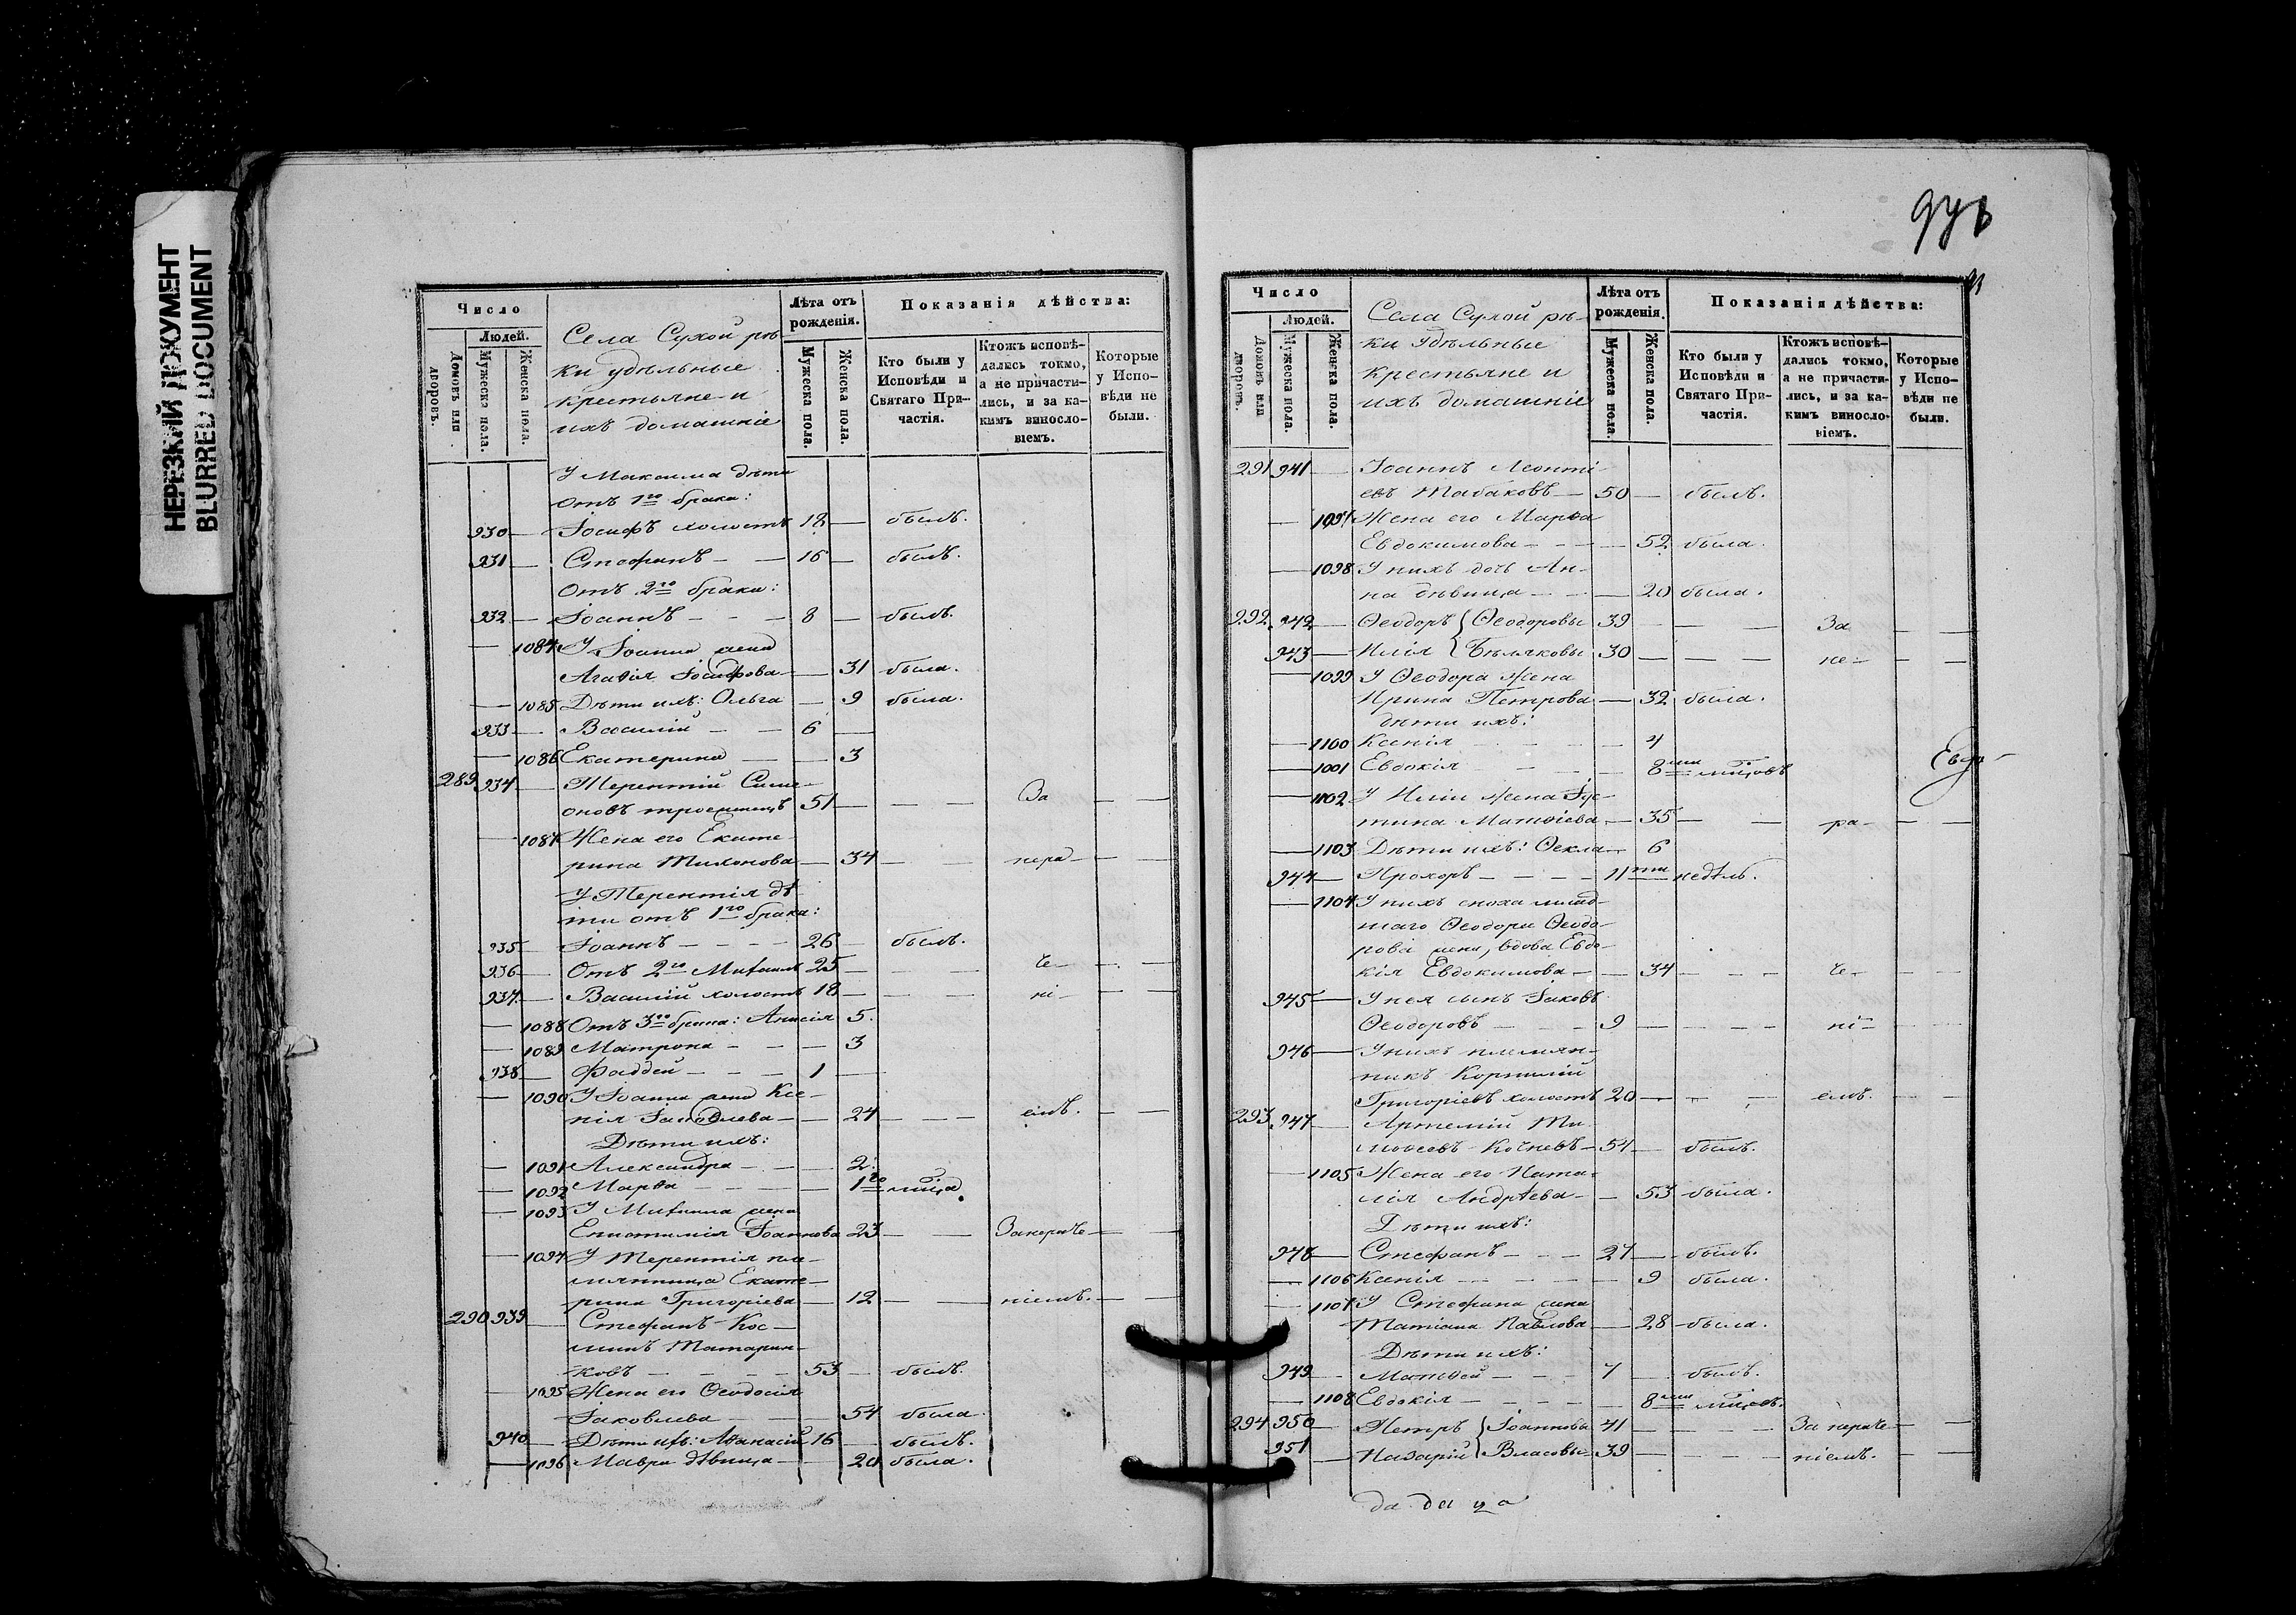 НЕРЕЗКИЙ ДОКУМЕНТ
BLURRED DOCUMENT
Число
Людей.
Домовъ или дворовъ.
Мужеска пола.
Женска пола.
Села Сухой рѣ-
ки удѣльные
крестьяне и
ихъ домашніе
Лѣта отъ рожденія.
Мужеска пола.
Женска пола.
Показанія дѣйства:
Кто были у Исповѣди и Святаго Причастія.
Ктожъ исповѣдались токмо, а не причастились, и за какимъ винословіемъ.
Которые у Исповѣди не были.
У Максима дѣти
отъ 1го брака:
930 — Іосифъ холостъ 18 — былъ.
931 — Стефанъ — — 16 — былъ.
Отъ 2го брака:
932 — Іоаннъ — — — 8 — былъ.
— 1084 У Іоанна жена
Агафія Іосифова — — 31 была.
— 1085 Дѣти ихъ: Ольга — 9 была.
933 — Василій — — 6 —
— 1086 Екатерина — — 3
289 934 — Терентій Симе-
оновъ троеженецъ 51 — — — За — —
— 1087 Жена его Екате-
рина Тихонова — — 34 — — пера — — —
У Терентія дѣ-
ти отъ 1го брака:
935 — Іоаннъ — — — — 26 — былъ.
936 — Отъ 2го Михаилъ 25 — — — че — — —
937 — Василій холостъ 18 — — — ні — — —
— 1088 Отъ 3го брака: Анисія 5.
— 1089 Матрона — — — 3
938 — Фаддей — — — 1 —
— 1090 У Іоанна жена Ксе-
нія Іаковлева — — 24 — — емъ. — —
Дѣти ихъ:
— 1091 Александра — — — 2.
— 1092 Марѳа — — — — 1го мѣсяца.
— 1093 У Михаила жена
Епистимія Іоаннова 23 — — Заператче — — —
— 1094 У Терентія пле-
мянница Екате-
рина Григоріева — 12 — — ніемъ. — —
290 939 — Стефанъ Кос-
минъ Татарин-
ковъ — — — — 53 — былъ.
— 1095 Жена его Ѳеодосія
Іаковлева — — 54 была.
940 — Дѣти ихъ: Аѳанасій 16 — былъ.
— 1096 Мавра дѣвица — — 20 была.
Число
Людей.
Домовъ или дворовъ.
Мужеска пола.
Женска пола.
Села Сухой рѣ-
ки удѣльные
крестьяне и
ихъ домашніе
Лѣта отъ рожденія.
Мужеска пола.
Женска пола.
Показанія дѣйства:
Кто были у Исповѣди и Святаго Причастія.
Ктожъ исповѣдались токмо, а не причастились, и за какимъ винословіемъ.
Которые у Исповѣди не были.
291 941 — Іоаннъ Леонті-
евъ Табаковъ — 50 — былъ.
— 1097 Жена его Марѳа
Евдокимова — — — — 52 была.
— 1098 У нихъ дочь Ан-
на дѣвица — — — 20 была.
292 942 — Ѳеодоръ { Ѳеодоровы 39 — — — За — —
943 — Илія { Бѣляковы 30 — — — пе — — —
— 1099 У Ѳеодора жена
Ирина Петрова — 32 была.
дѣти ихъ:
— 1100 Ксенія — — — — 4
— 1001 Евдокія — — — — 8ми мѣсяцовъ
— 1102 У Иліи жена Іус-
тина Матѳіева — 35 — — ра — — —
— 1103 Дѣти ихъ: Ѳекла — 6
944 — Прохоръ — — — — 11ти недѣль.
— 1104 У нихъ сноха млад-
шаго Ѳеодора Ѳеодо-
рова жена, вдова Евдо-
кія Евдокимова — — 34 — — — че — — —
945 — У нея сынъ Іаковъ
Ѳеодоровъ — — — 9 — — — — ні — — —
946 — У нихъ племян-
никъ Корнилій
Григоріевъ холостъ 20 — — — емъ. — —
293 947 — Артемій Ти-
моѳеевъ Кочневъ — 54 — былъ.
— 1105 Жена его Ната-
лія Андрѣева — — 53 была.
Дѣти ихъ:
948 — Стефанъ — — — 27 — былъ.
— 1106 Ксенія — — — — — 9 была.
— 1107 У Стефана жена
Татіана Павлова — 28 была.
Дѣти ихъ:
949 — Матѳей — — — 7 — былъ.
— 1108 Евдокія — — — — — 8ми мѣсяцовъ.
294 950 — Петръ { Іоанновы 41 — — — — За перече — —
951 — Назарій { Власовы 39 — — — — ніемъ. — —